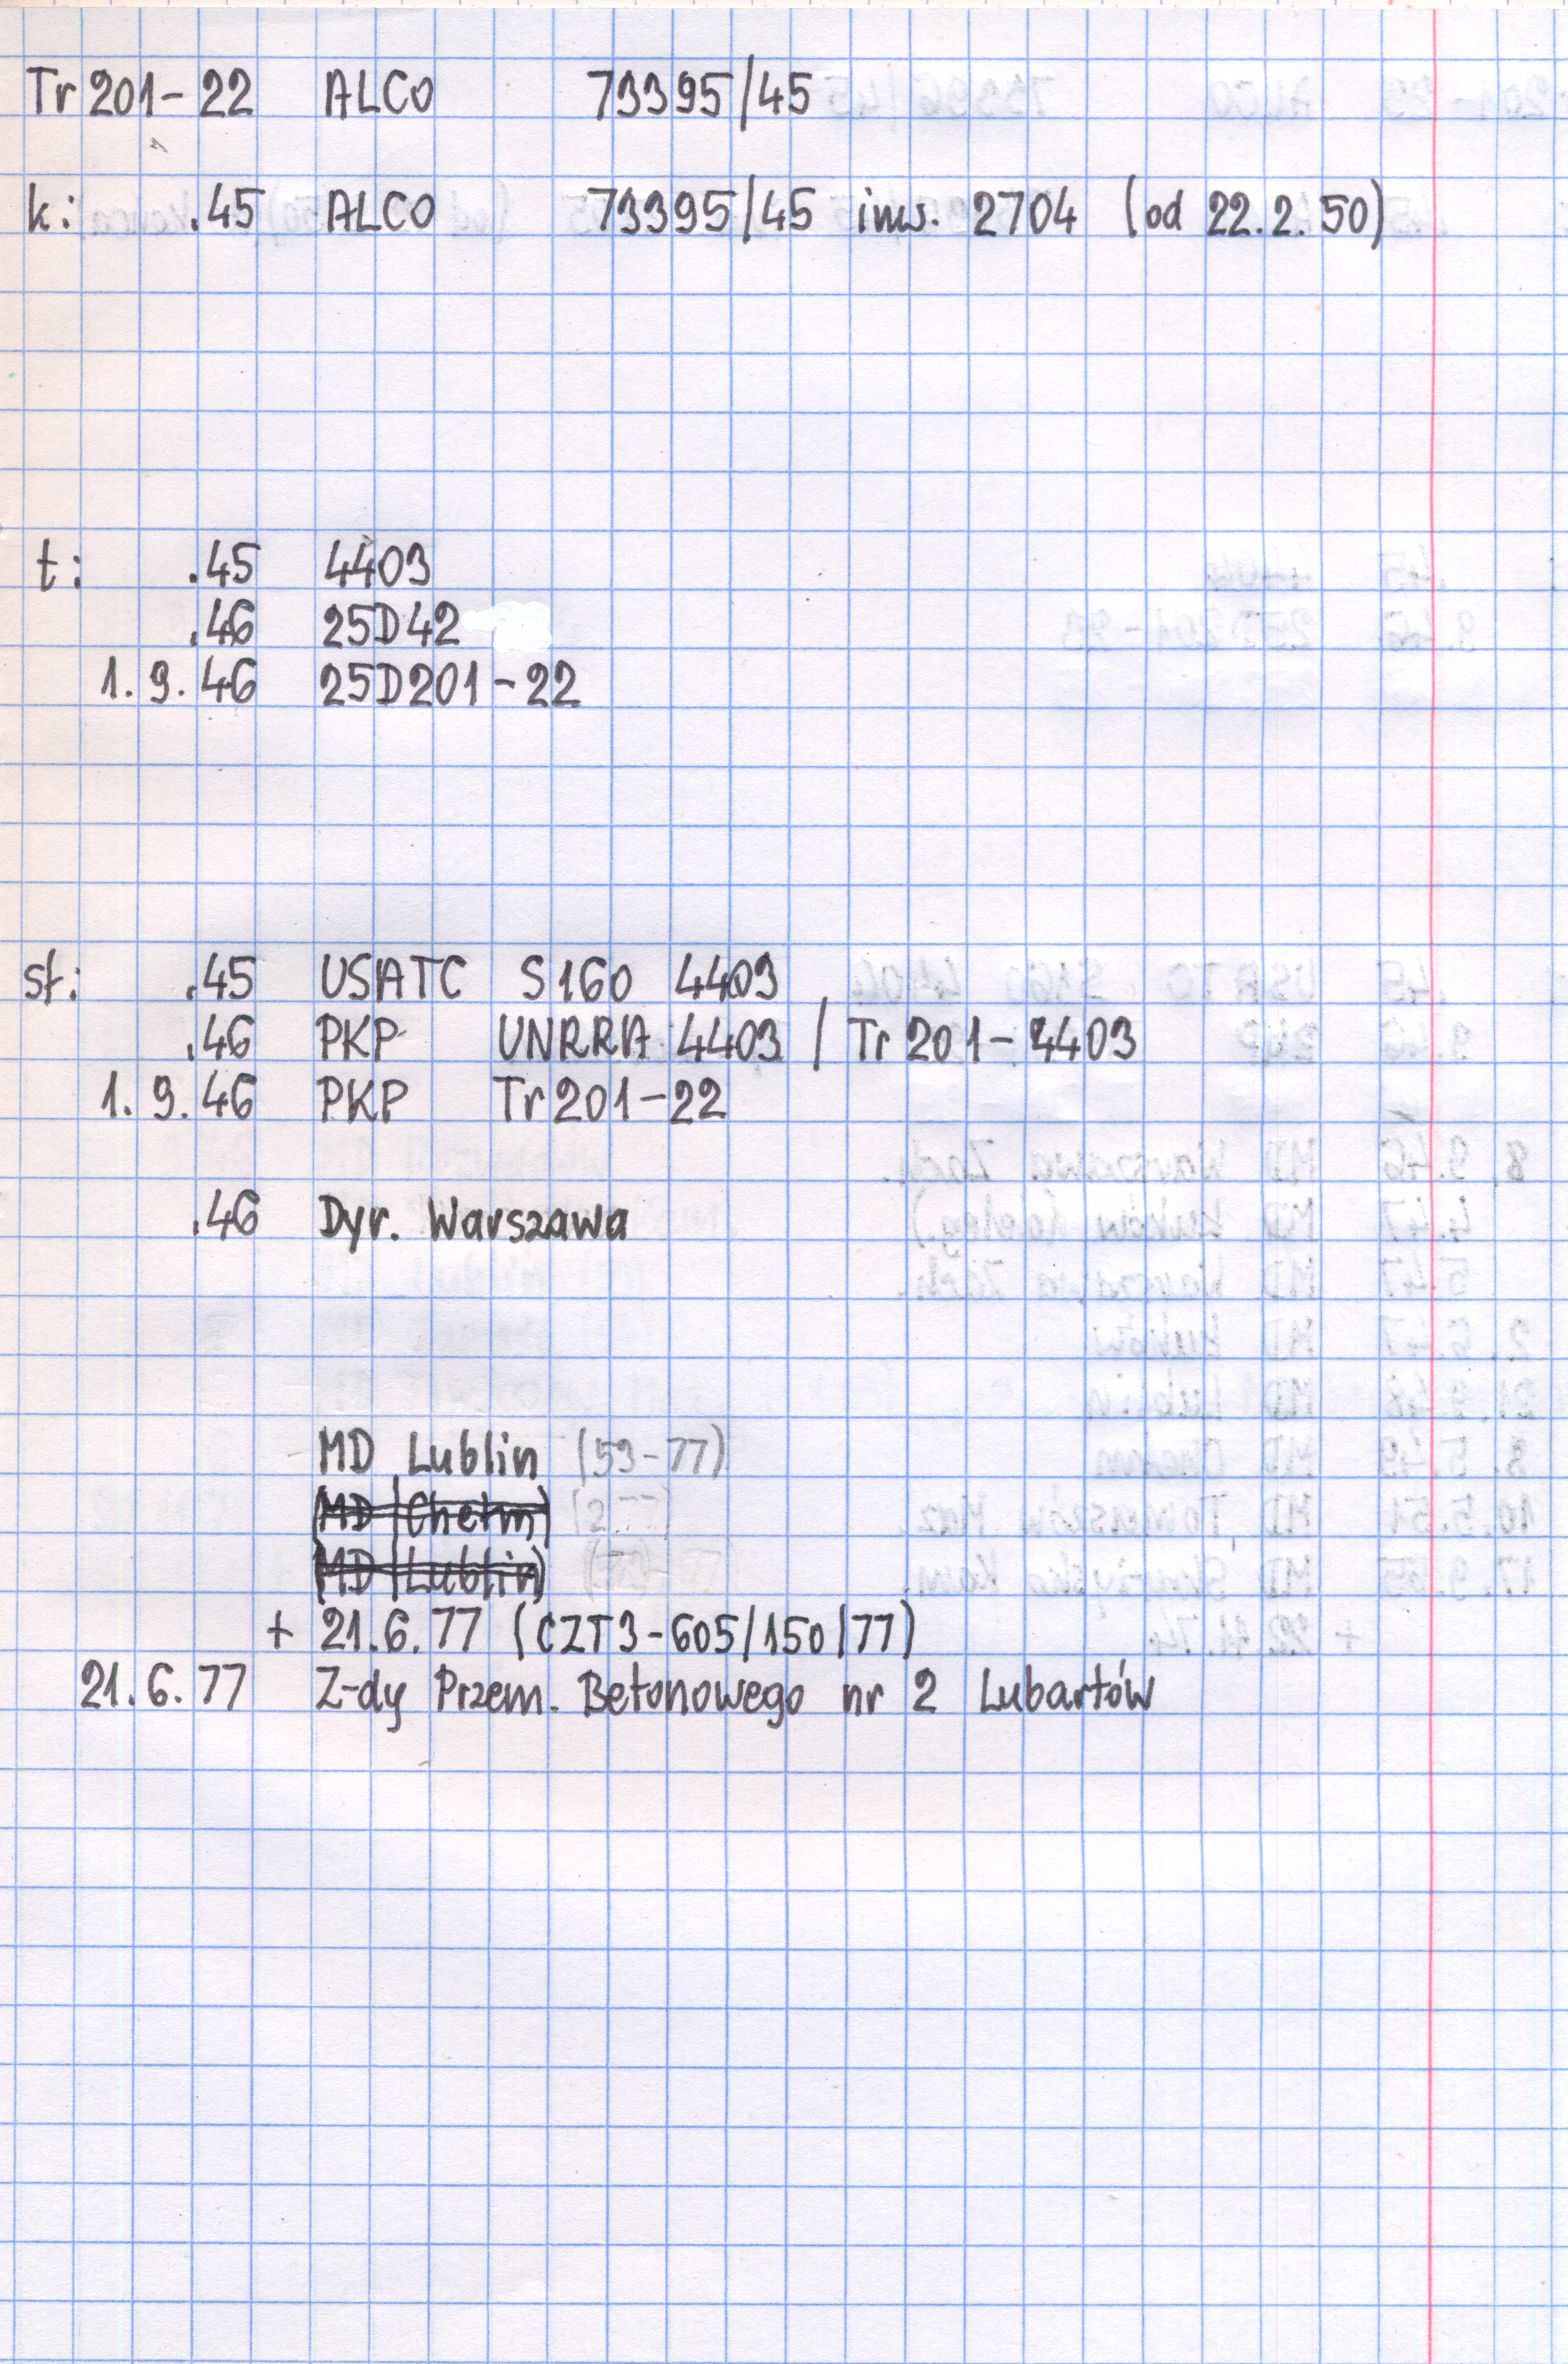 Tr 201-22 ALCO 73395/45
k: .45 ALCO 73395/45 inw. 2704 (od 22.2.50)
t: .45 4403
.46 25D42
1.9.46 25D201-22
st: .45 USATC S160 4403
.46 PKP UNRRA 4403 / Tr 201-4403
1.9.46 PKP Tr 201-22
.46 Dyr. Warszawa
MD Lublin (59-77)
(MD Chełm) (2.77)
(MD Lublin)
+ 21.6.77 (CZT3-605/150/77)
21.6.77 Z-dy Przem. Betonowego nr 2 Lubartów